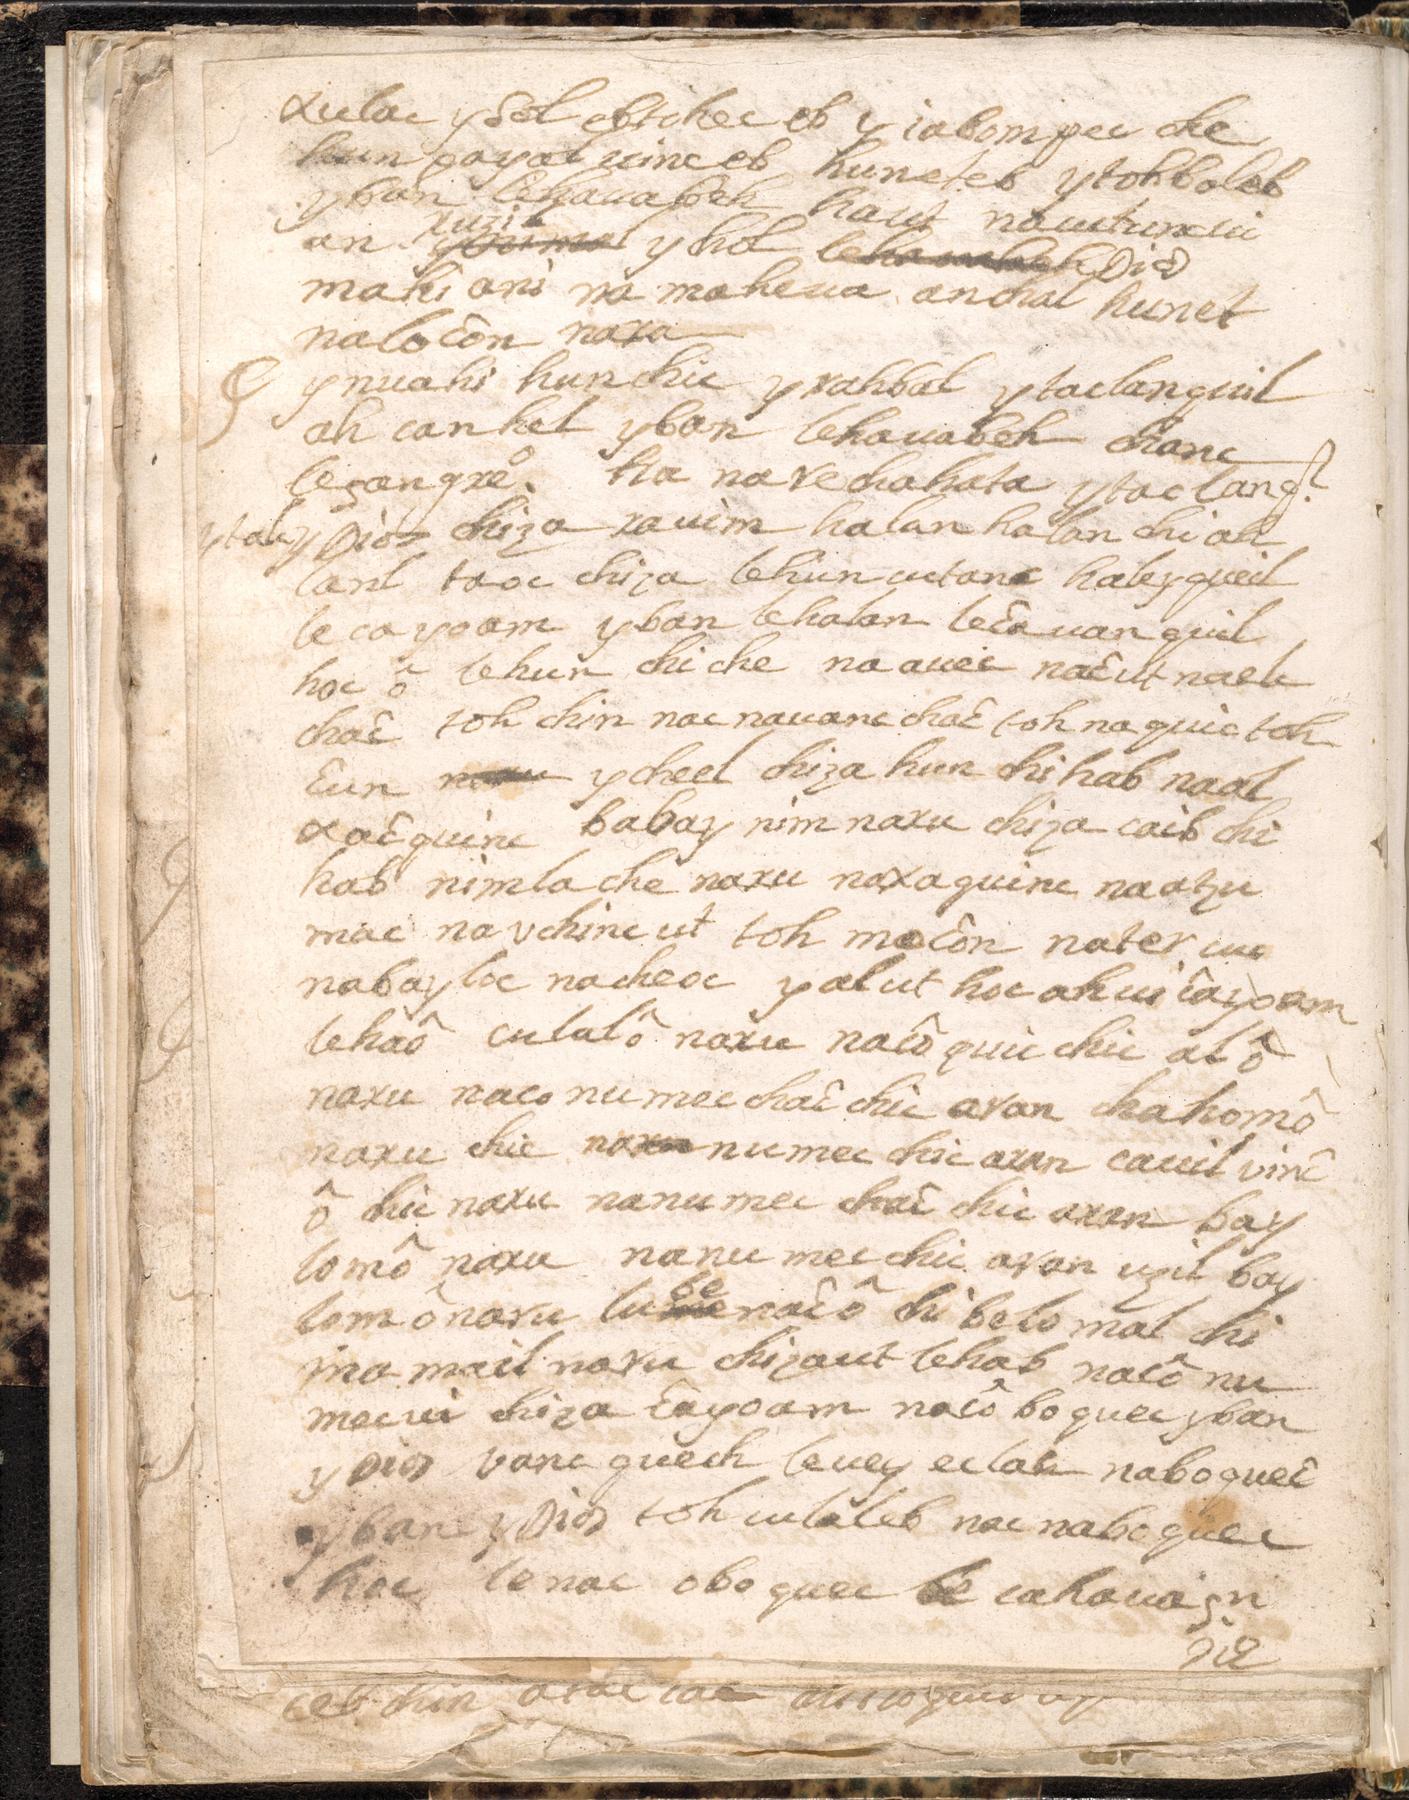 xulac ysel ebtchec eb y iabompec che
hun payal uinc eb huneteb ytohbaleb
yban lehauabeh haut nauutunui
an xuzil yhol Dios
mahi ani na maheua anchal hunet
nalocôn naxa
ynuahi hunchic yxahbal ytaclanquil
ah canhel yban lehauabeh chanc
lesangre. ha narechahata ytaclanq.l
ytal y Dios chiza xauim halan halan chi ah
lanl taoc chiza lehun cutanc haleyqueil
le cayoam yban lehalan lec̃a uanquil
hoc ô lehun chiche na auec nac̃ut naelc
chac̃ toh chin nac nauanc chac̃ toh na quic toh
c̃un ycheel chiza hun chihab naal
xac̃quinc babay nim naxu chiza caib chi
hab nimla che naxu naxaquinc naatzu
mac na vchinc ut toh macôn nater cuc
nabayloc nacheoc yalut hoc ahui c̃ayoam
lehaô culalô naxu nacô quic chic alô
naxu naco numec chac̃ chic aran chahomô
naxu chic numec chic aran cauil vinc̃
ô chic naxu nanumec chac̃ chic aran bay
lomô naxu nanumec chic aran uzil bay
lomô naxu lube nac̃ô chi belomal chi
ixamail naxu chizaut lehab nacô nu
mecui chiza c̃ayoam nacô boquec yban
y Dios vanc quech leuey eclah naboquec̃
ybanc y Dios toh culaleb nac naboquec
hoc lenac oboquec le cahauai gn
Dis
ceb chin